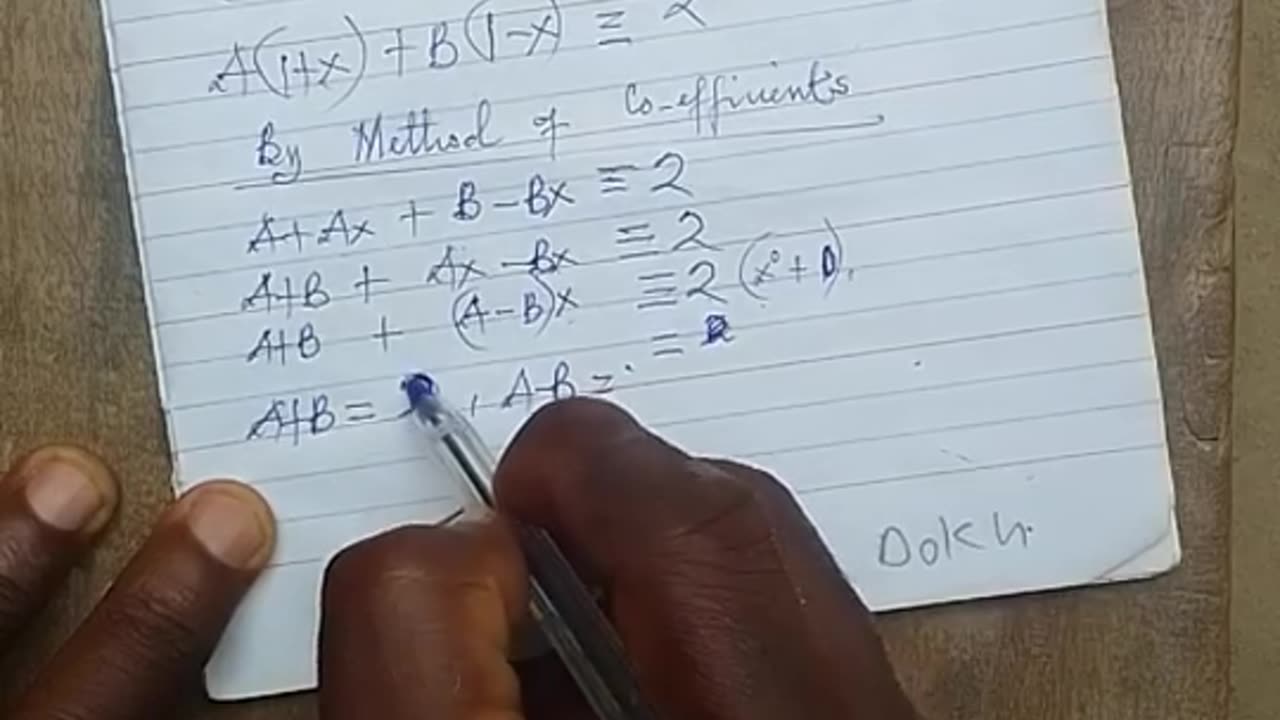 A(1+x) + B(1-x) ≡ 2
By Method of Co-efficients
A+Ax + B-Bx ≡ 2
A+B + Ax -Bx ≡ 2
A+B + (A-B)x ≡ 2 (x⁰ + 0).
=
A+B = , A-B =
Dokh.